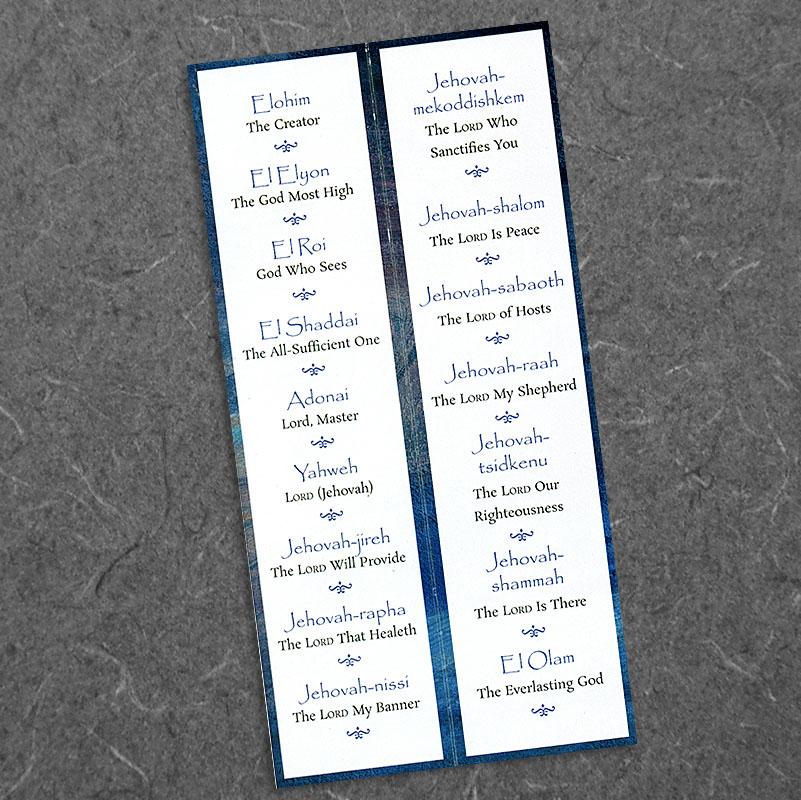 Elohim
The Creator
El Elyon
The God Most High
El Roi
God Who Sees
El Shaddai
The All-Sufficient One
Adonai
Lord, Master
Yahweh
LORD (Jehovah)
Jehovah-jireh
The LORD Will Provide
Jehovah-rapha
The LORD That Healeth
Jehovah-nissi
The LORD My Banner
Jehovah-
mekoddishkem
The LORD Who
Sanctifies You
Jehovah-shalom
The LORD Is Peace
Jehovah-sabaoth
The LORD of Hosts
Jehovah-raah
The LORD My Shepherd
Jehovah-
tsidkenu
The LORD Our
Righteousness
Jehovah-
shammah
The LORD Is There
El Olam
The Everlasting God